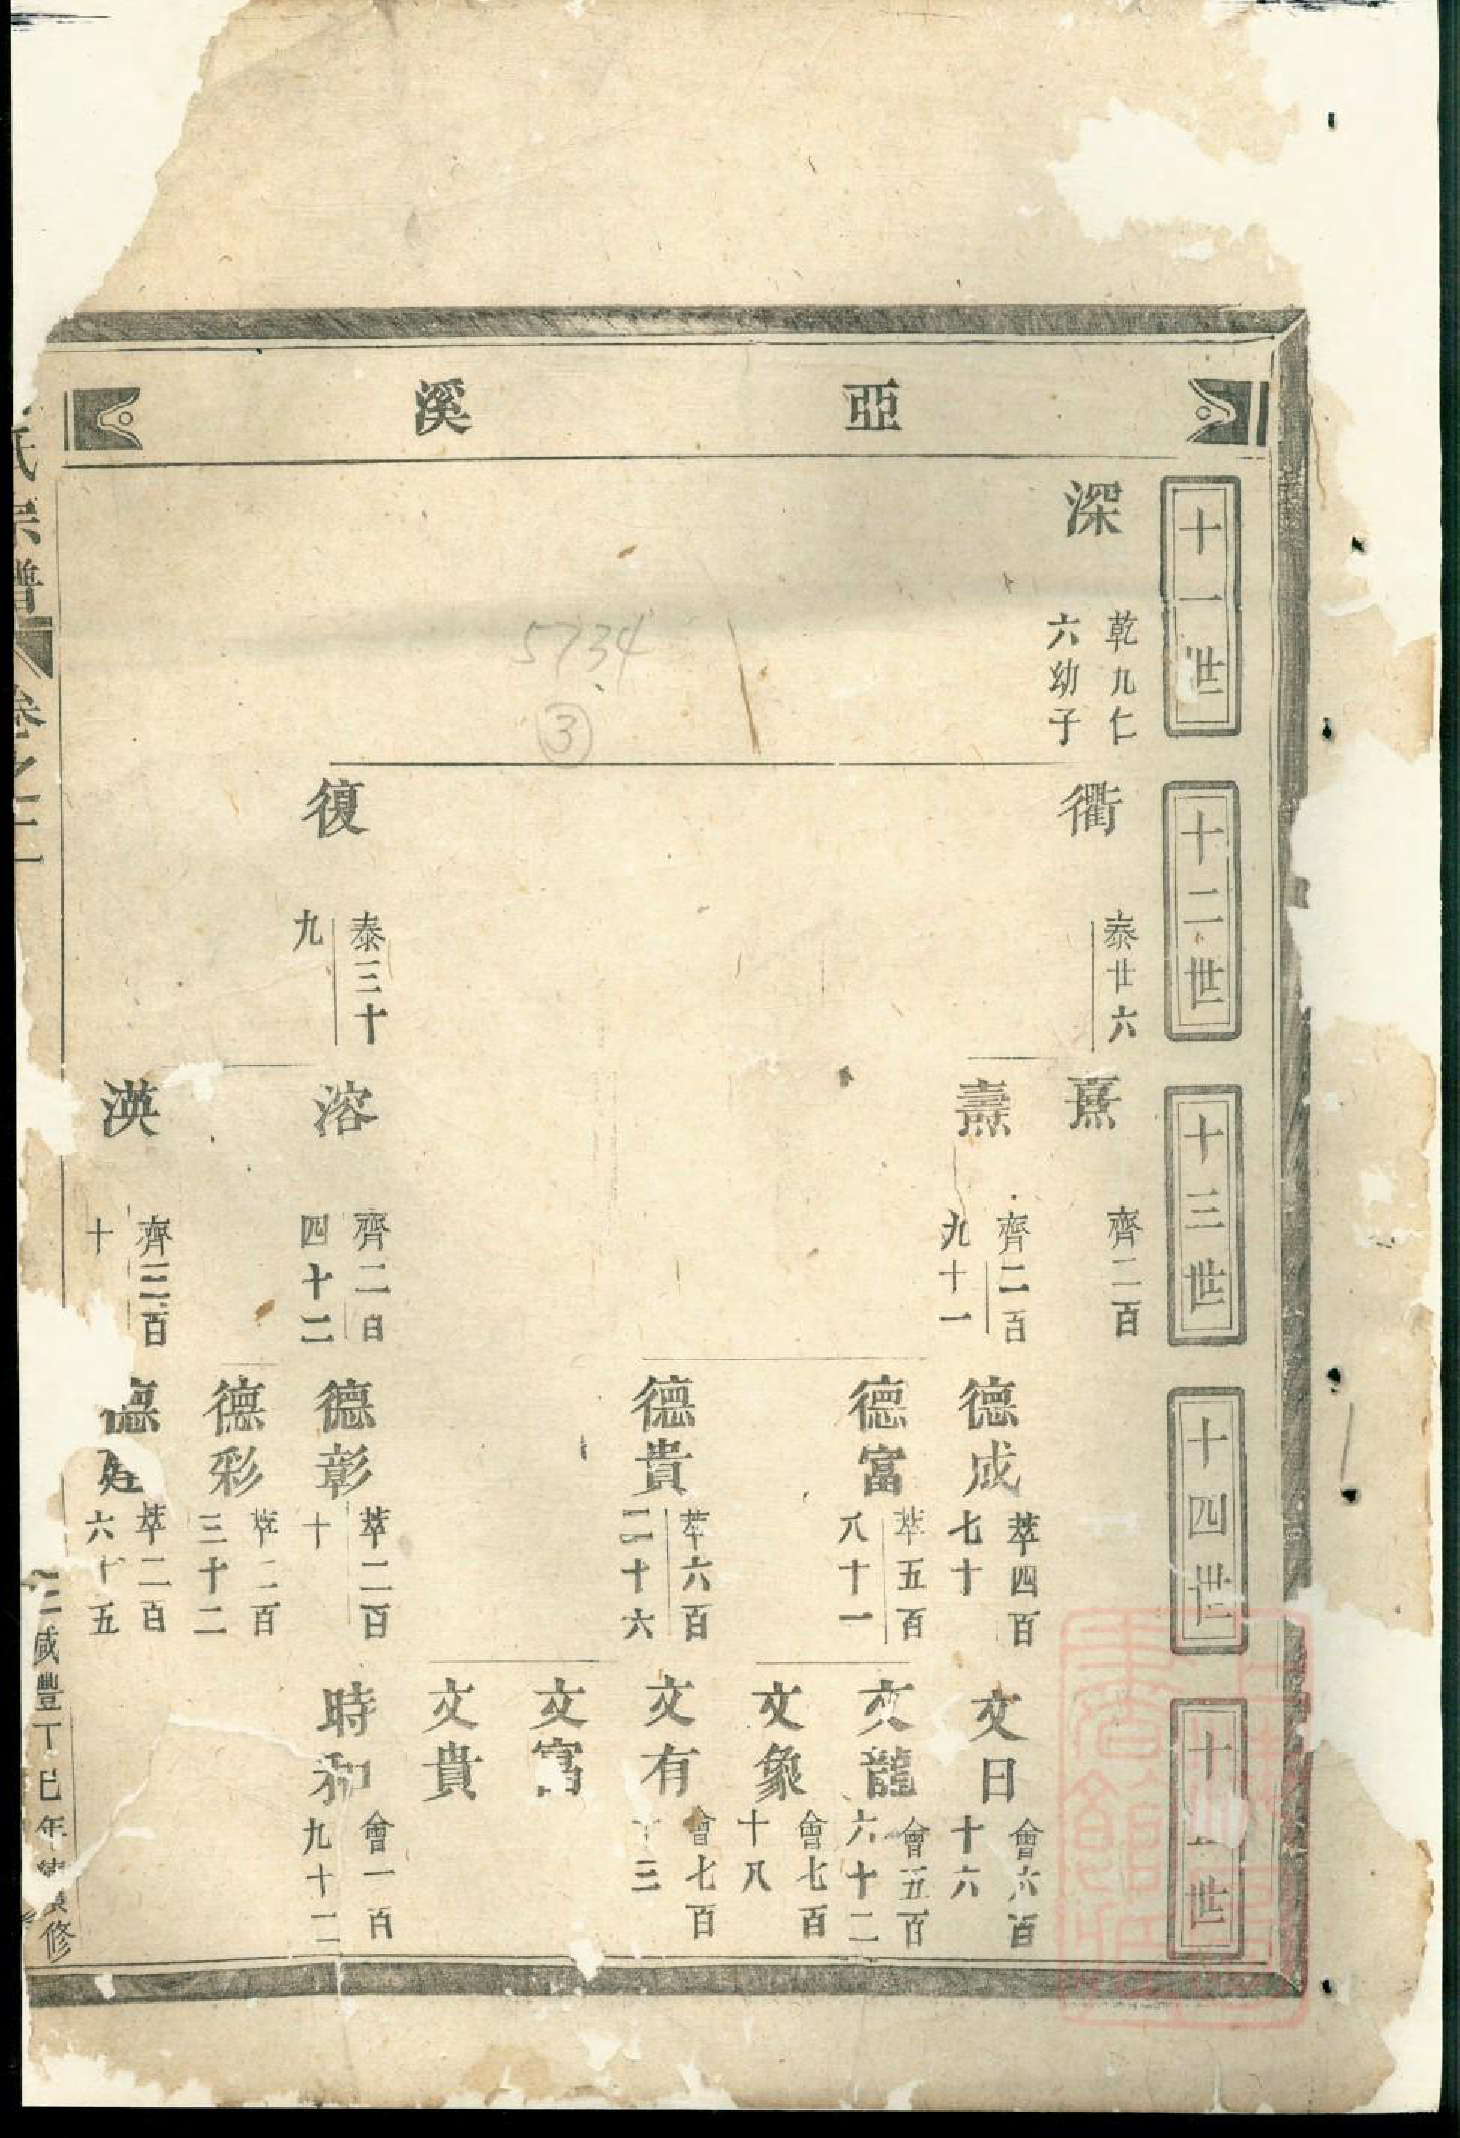 亞溪
十一世
深
乾九仁
六幼子
十二世
衢
泰廿六
復
泰三十
九
十三世
熹
齊二百
燾
齊二百
九十一
溶
齊二百
四十二
漢
齊三百
十
十四世
德成
萃四百
七十
德富
萃五百
八十一
德貴
萃六百
二十六
德彰
萃二百
十
德彩
萃二百
三十二
德
萃二百
六十五
十世
文日
會六百
十六
文龍
會五百
六十二
文象
會七百
十八
文有
會七百
十三
文富
文貴
時和
會一百
九十二
氏宗譜
卷之二
咸豐丁巳年
修
5734
③